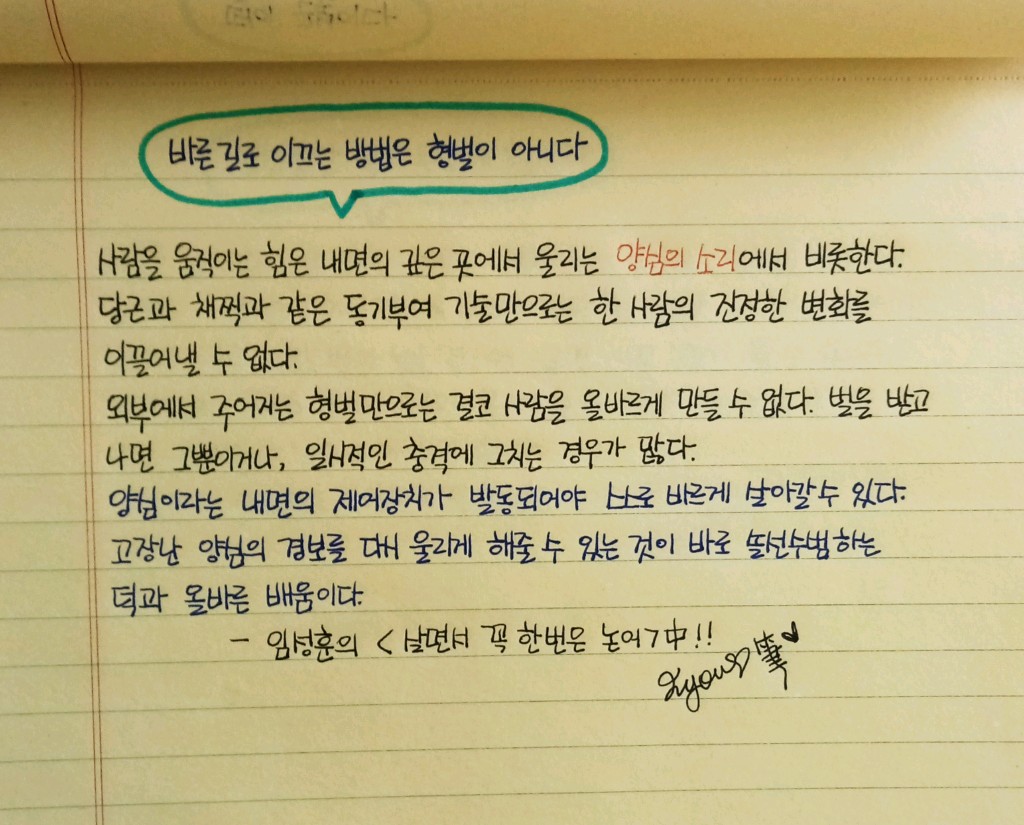 바른길로 이끄는 방법은 형벌이 아니다
사람을 움직이는 힘은 내면의 깊은 곳에서 울리는 양심의 소리에서 비롯한다.
당근과 채찍과 같은 동기부여 기술만으로는 한 사람의 진정한 변화를
이끌어낼 수 없다.
외부에서 주어지는 형벌만으로는 결코 사람을 올바르게 만들 수 없다. 벌을 받고
나면 그뿐이거나, 일시적인 충격에 그치는 경우가 많다.
양심이라는 내면의 제어장치가 발동되어야 스스로 바르게 살아갈 수 있다.
고장난 양심의 경보를 다시 울리게 해줄 수 있는 것이 바로 솔선수범하는
덕과 올바른 배움이다.
- 임성훈의 < 살면서 꼭 한번은 논어 > 中 !!